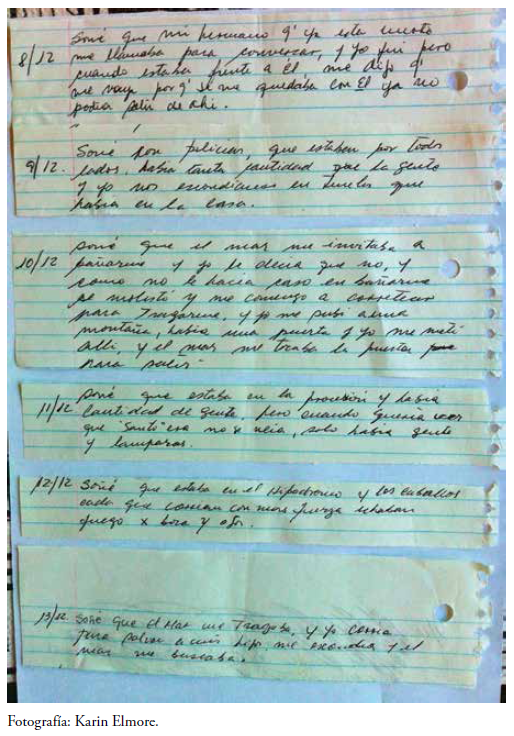 8/12 Soñé que mi hermano q' ya esta muerto
me llamaba para conversar, y yo fui pero
cuando estaba frente a Él me dijo q'
me vaya por q' si me quedaba con Él ya no
podia salir de ahi.
9/12. Soñé con policias, que estaban por todos
lados, habia tanta cantidad que la gente
y yo nos escondiamos en tuneles que
habia en la casa.
10/12 Soñé que el mar me invitaba a
bañarme y yo le decia que no, y
como no le hacia caso en bañarme
se molestó y me comenzo a corretear
para Tragarme, y yo me subi a una
montaña, habia una puerta y yo me meti
alli, y el mar me tocaba la puerta
para salir
11/12 Soñé que estaba en la procesión y habia
cantidad de gente, pero cuando queria ver
que "Santo" era no se veia, solo habia gente
y lamparas.
12/12 Soñé que estaba en el Hipodromo y los caballos
cada que corrian con mas fuerza echaban
fuego x boca y ojos.
13/12 Soñé que el Mar me Tragaba, y yo corria
para salvar a mis hijos, me escondia y el
mar me buscaba.
Fotografía: Karin Elmore.